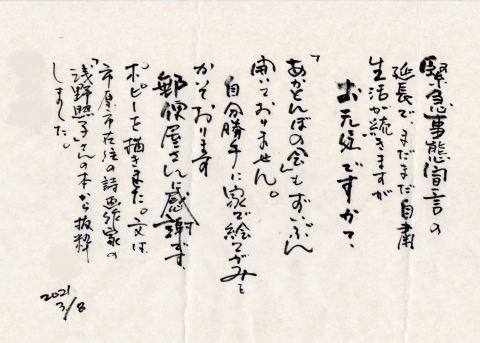 緊急事態宣言の
延長で、まだまだ自粛
生活が続きますが
お元気ですか？
「あかとんぼの会」もずいぶん
開いておりません。
自分勝手に家で絵てがみを
かいております
郵便屋さんに感謝です、
ポピーを描きました。文は、
市原市在住の詩画作家の
「浅野照子」さんの本から抜粋
しました。
2021
3/8